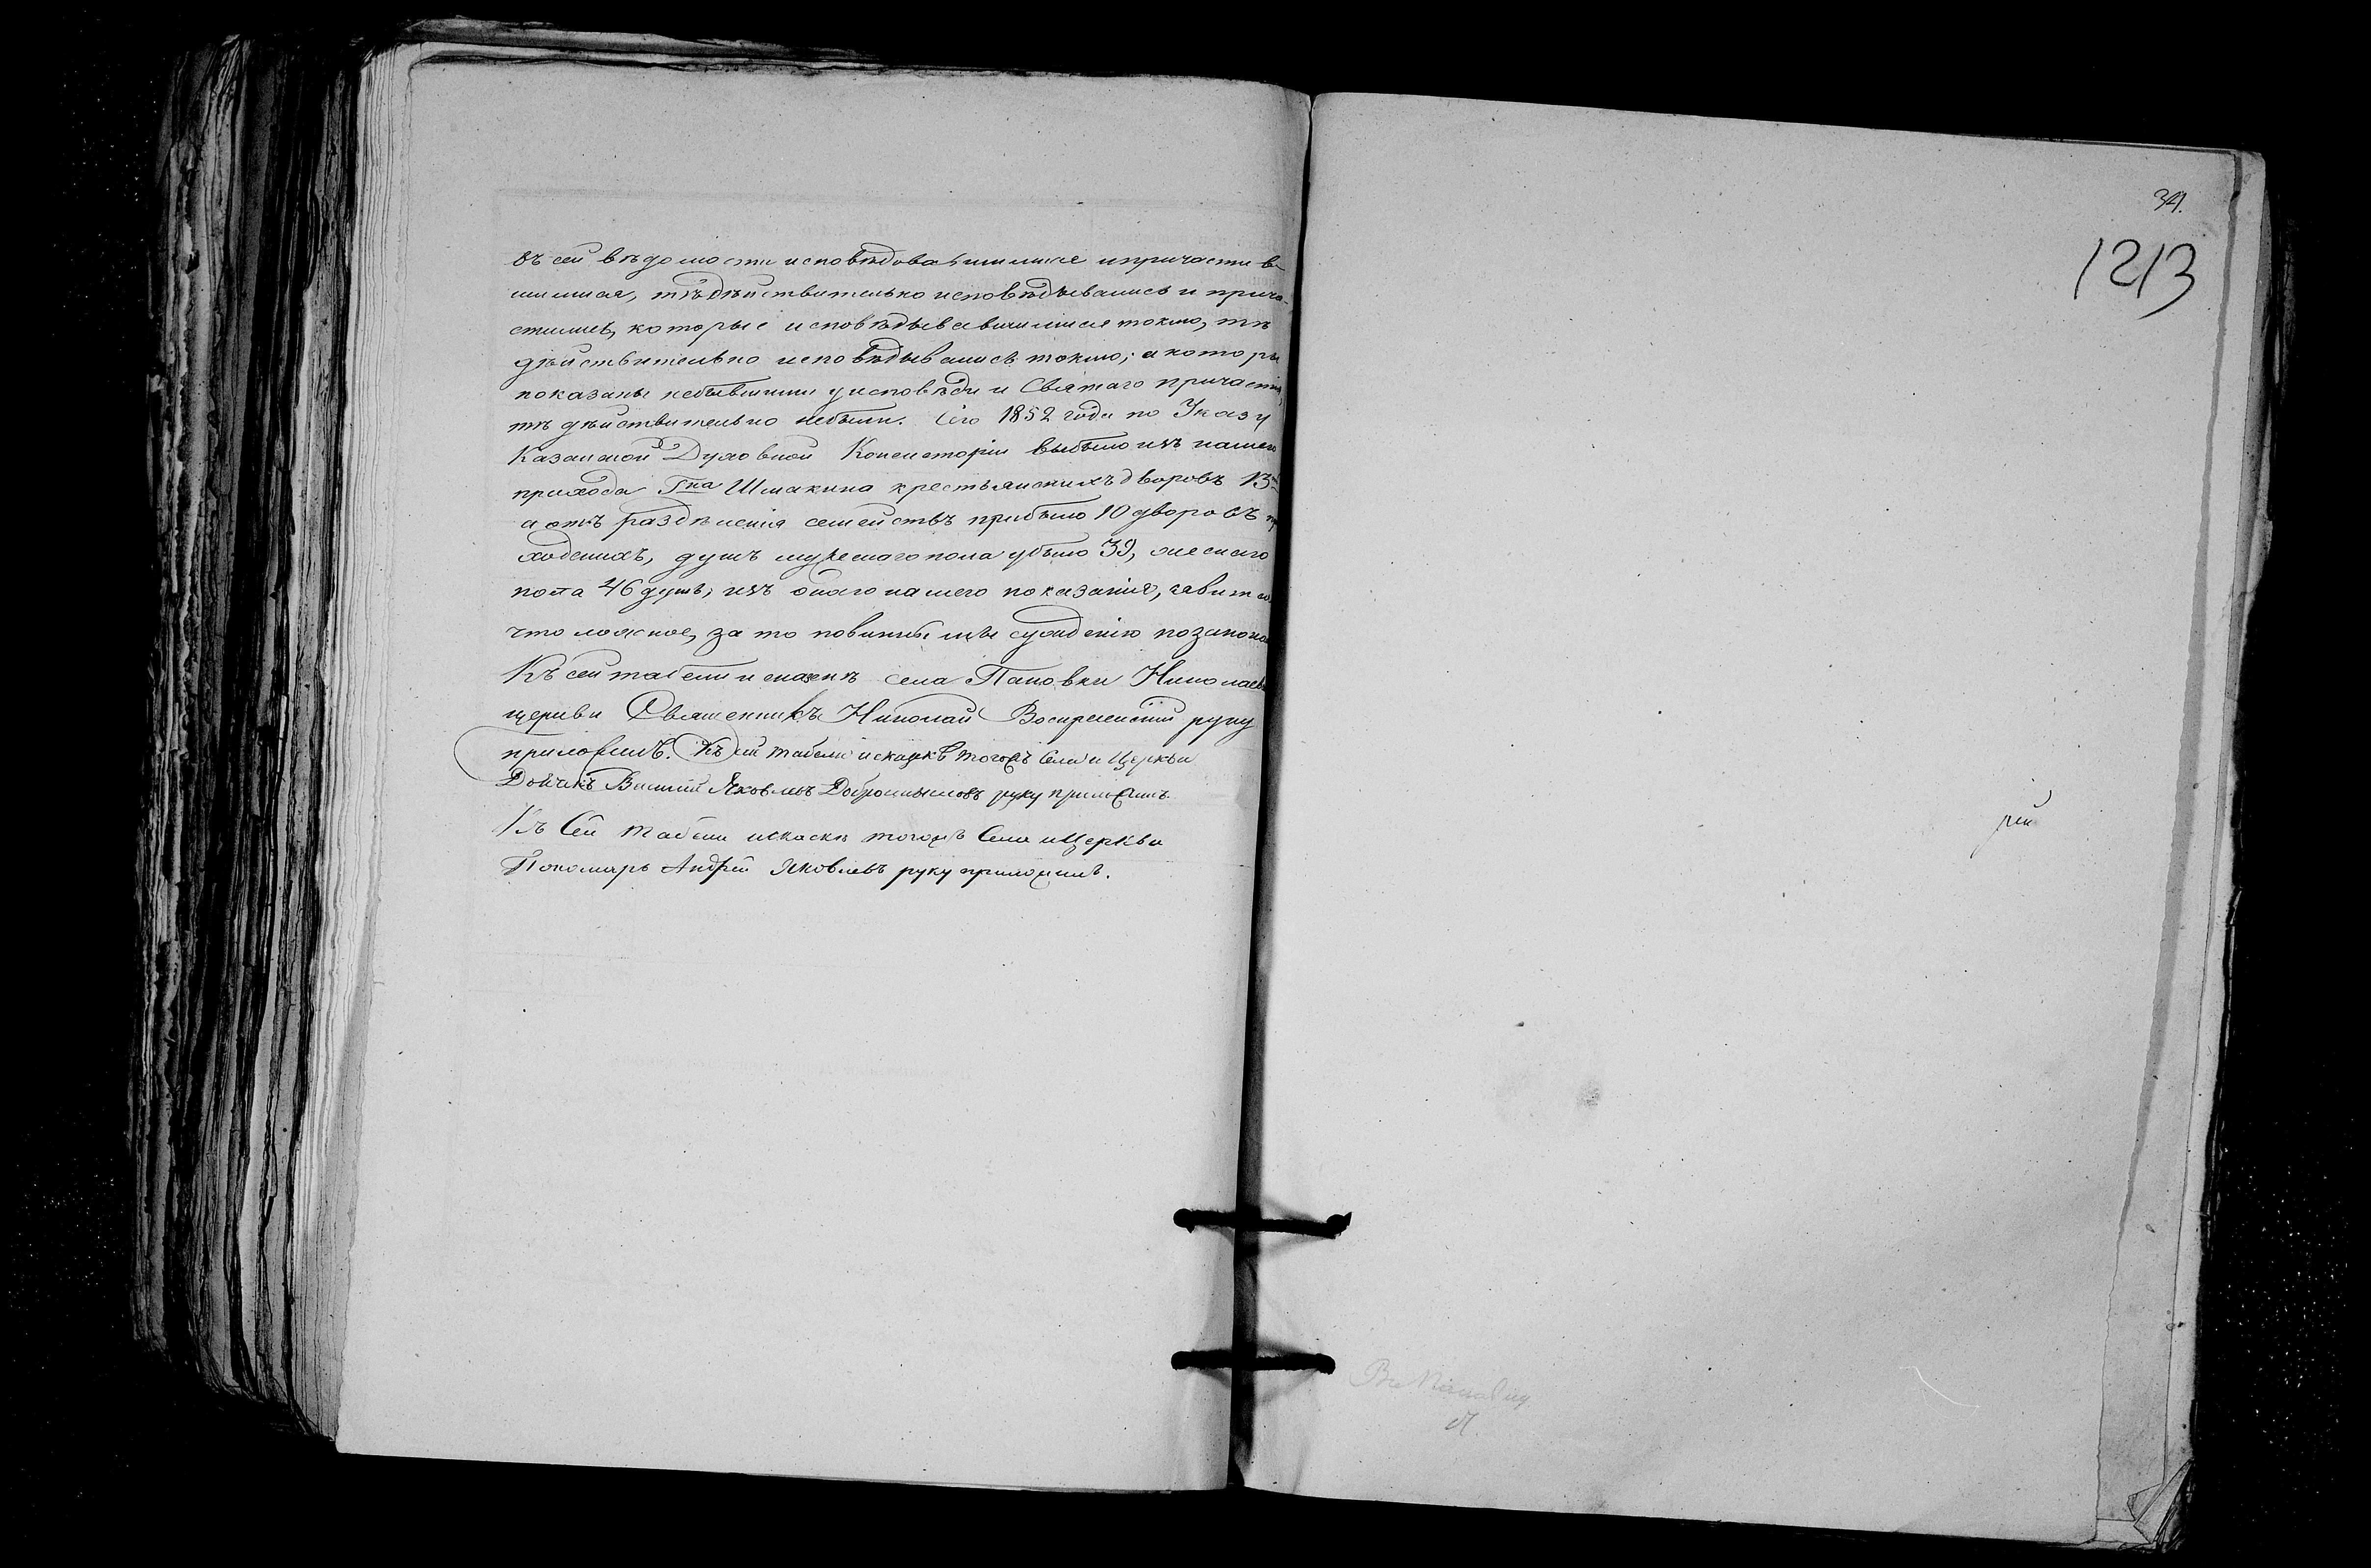 въ сей вѣдомости исповѣдовавшимися и причастив-
шимися, тѣ дѣйствительно исповѣдывались и прича-
стились, которые исповѣдывавшимися токмо, тѣ
дѣйствительно исповѣдывались токмо; а которы
показаны небывшими у исповѣди и Святаго причастія,
тѣ дѣйствительно небыли. Сего 1852 года по Указу
Казанской Духовной Консисторіи выбыло изъ нашего
прихода Гна Шмакина крестьянскихъ дворовъ 13
а отъ раздѣленія семействъ прибыло 10 дворовъ пр
ходскихъ, душъ мужескаго пола убыло 39, женскаго
пола 46 душъ; изъ онаго нашего показанія, явится
что ложное, за то повинны мы сужденію по законо
Къ сей табели и сказкѣ села Пановки Николаев
церкви Священникъ Николай Воскресенскій руку
приложилъ. Къ сей табели и сказкѣ тогожъ Села и Церкви
Дьячикъ Василій Яковлевъ Добросмысловъ руку приложилъ.
Къ Сей табели и скаске тогожъ Села и Церкви
Пономарь Андрей Яковлевъ руку приложилъ.
34.
1213
рей